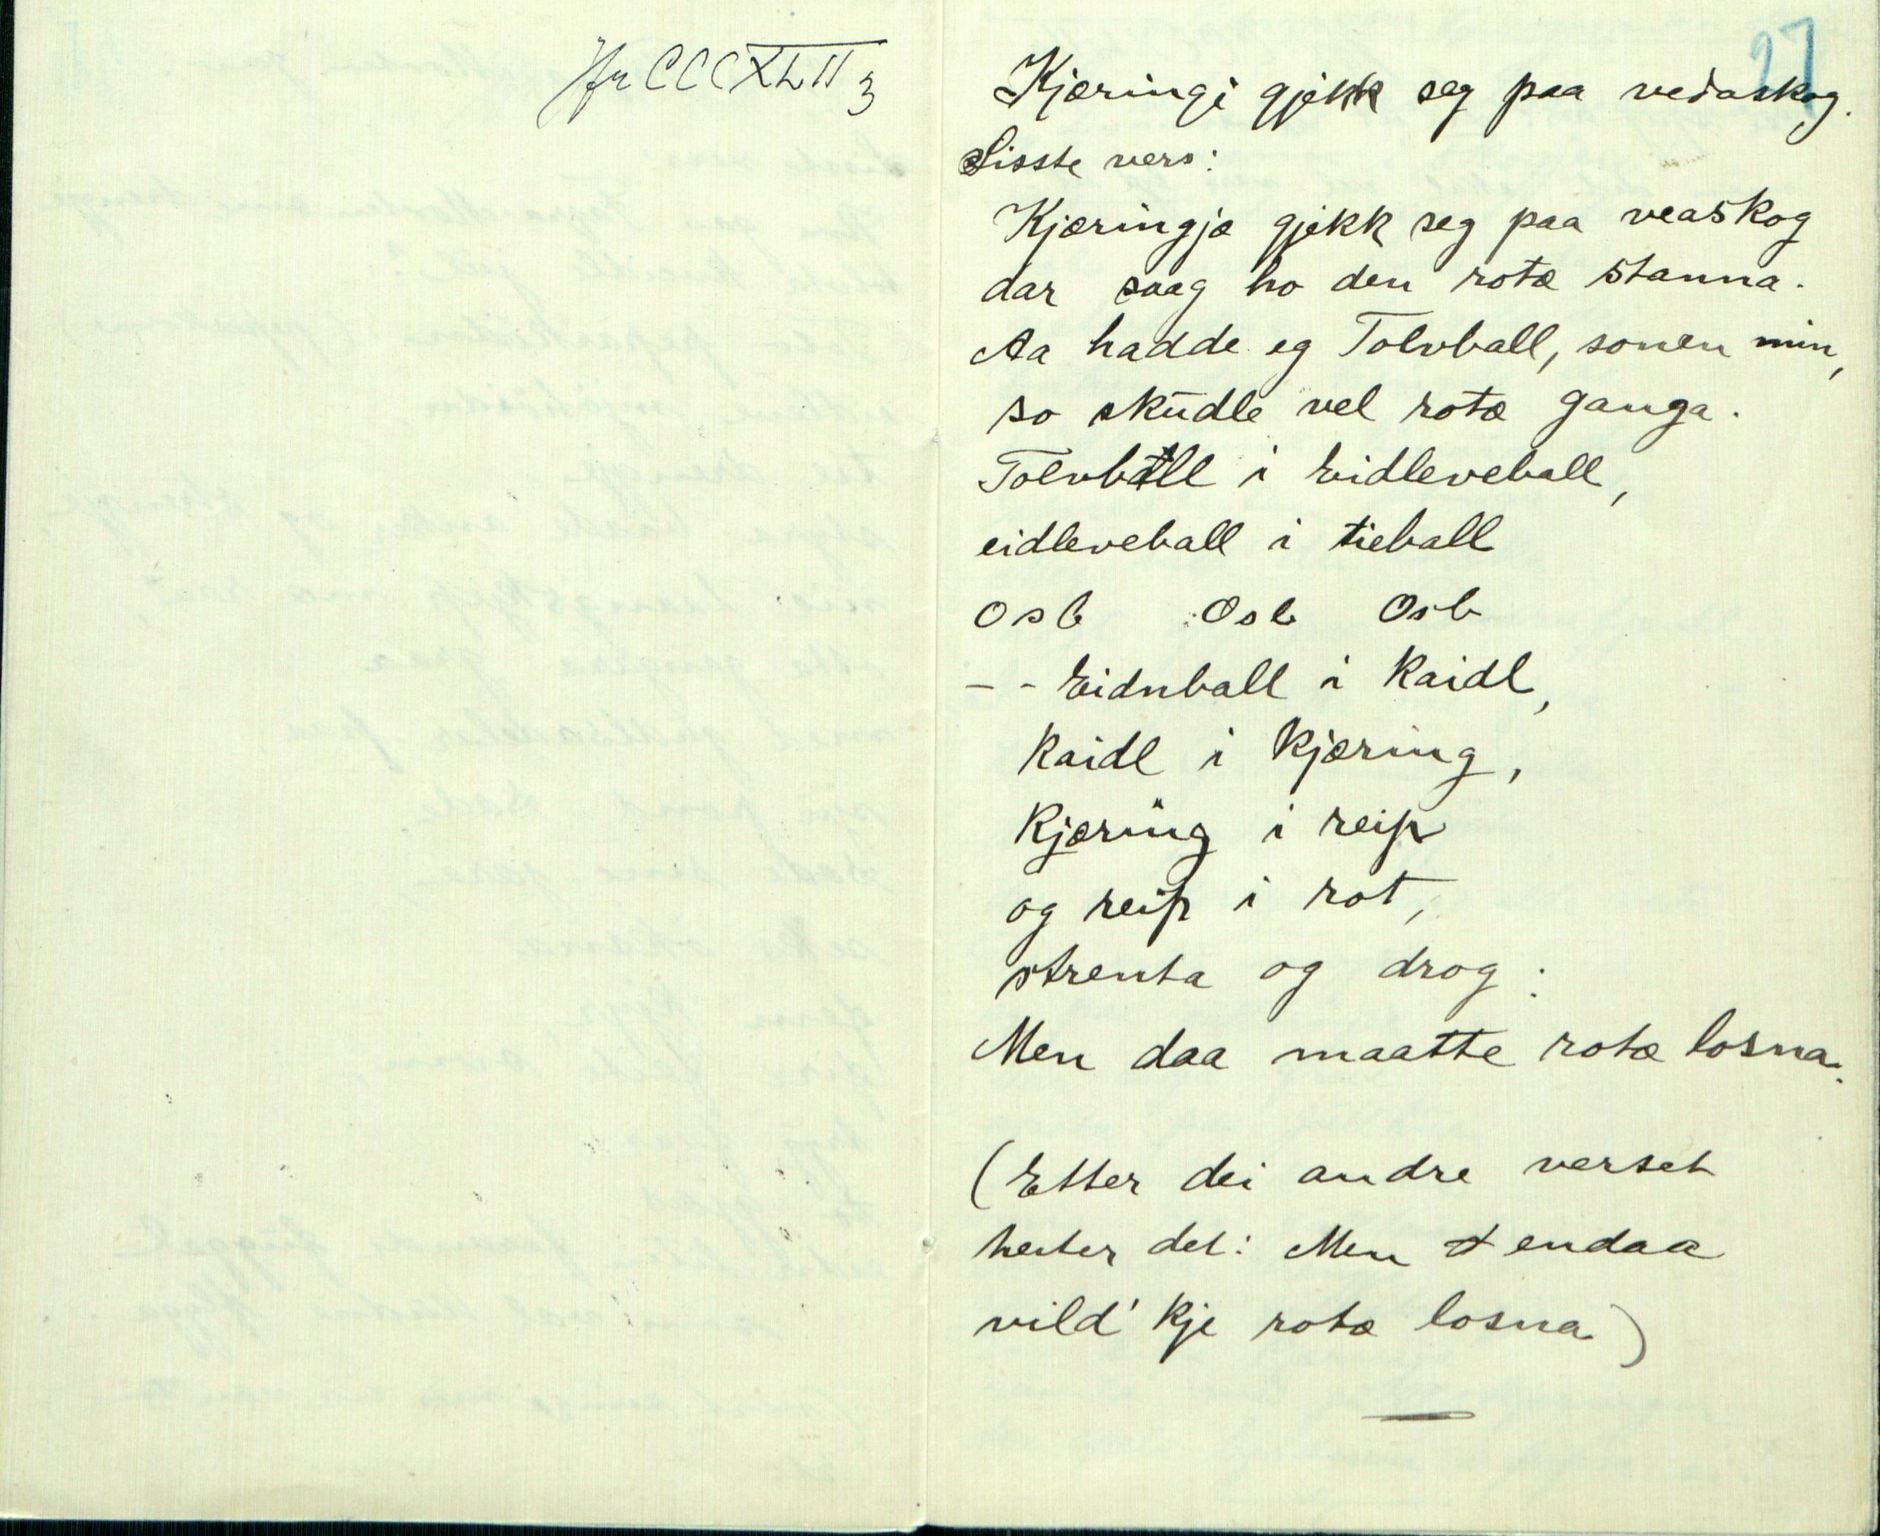 Jfr CCCXLII 3
27
Kjæringi gjekk seg paa vedaskog.
Sisste vers:
Kjæringjæ gjekk seg paa veaskog
dar saag ho den rotæ stanna.
Aa hadde eg Tolvball, sonen min,
so skudle vel rotæ ganga.
Tolvball i Eidleveball,
eidleveball i tieball
osb osb osb
- - Eidnball i Kaidl,
Kaidl i Kjæring,
Kjæring i reip
og reip i rot,
strenta og drog:
Men daa maatte rotæ losna.
(Etter dei andre verset
heiter det: Men endaa
vild' kje rotæ losna)